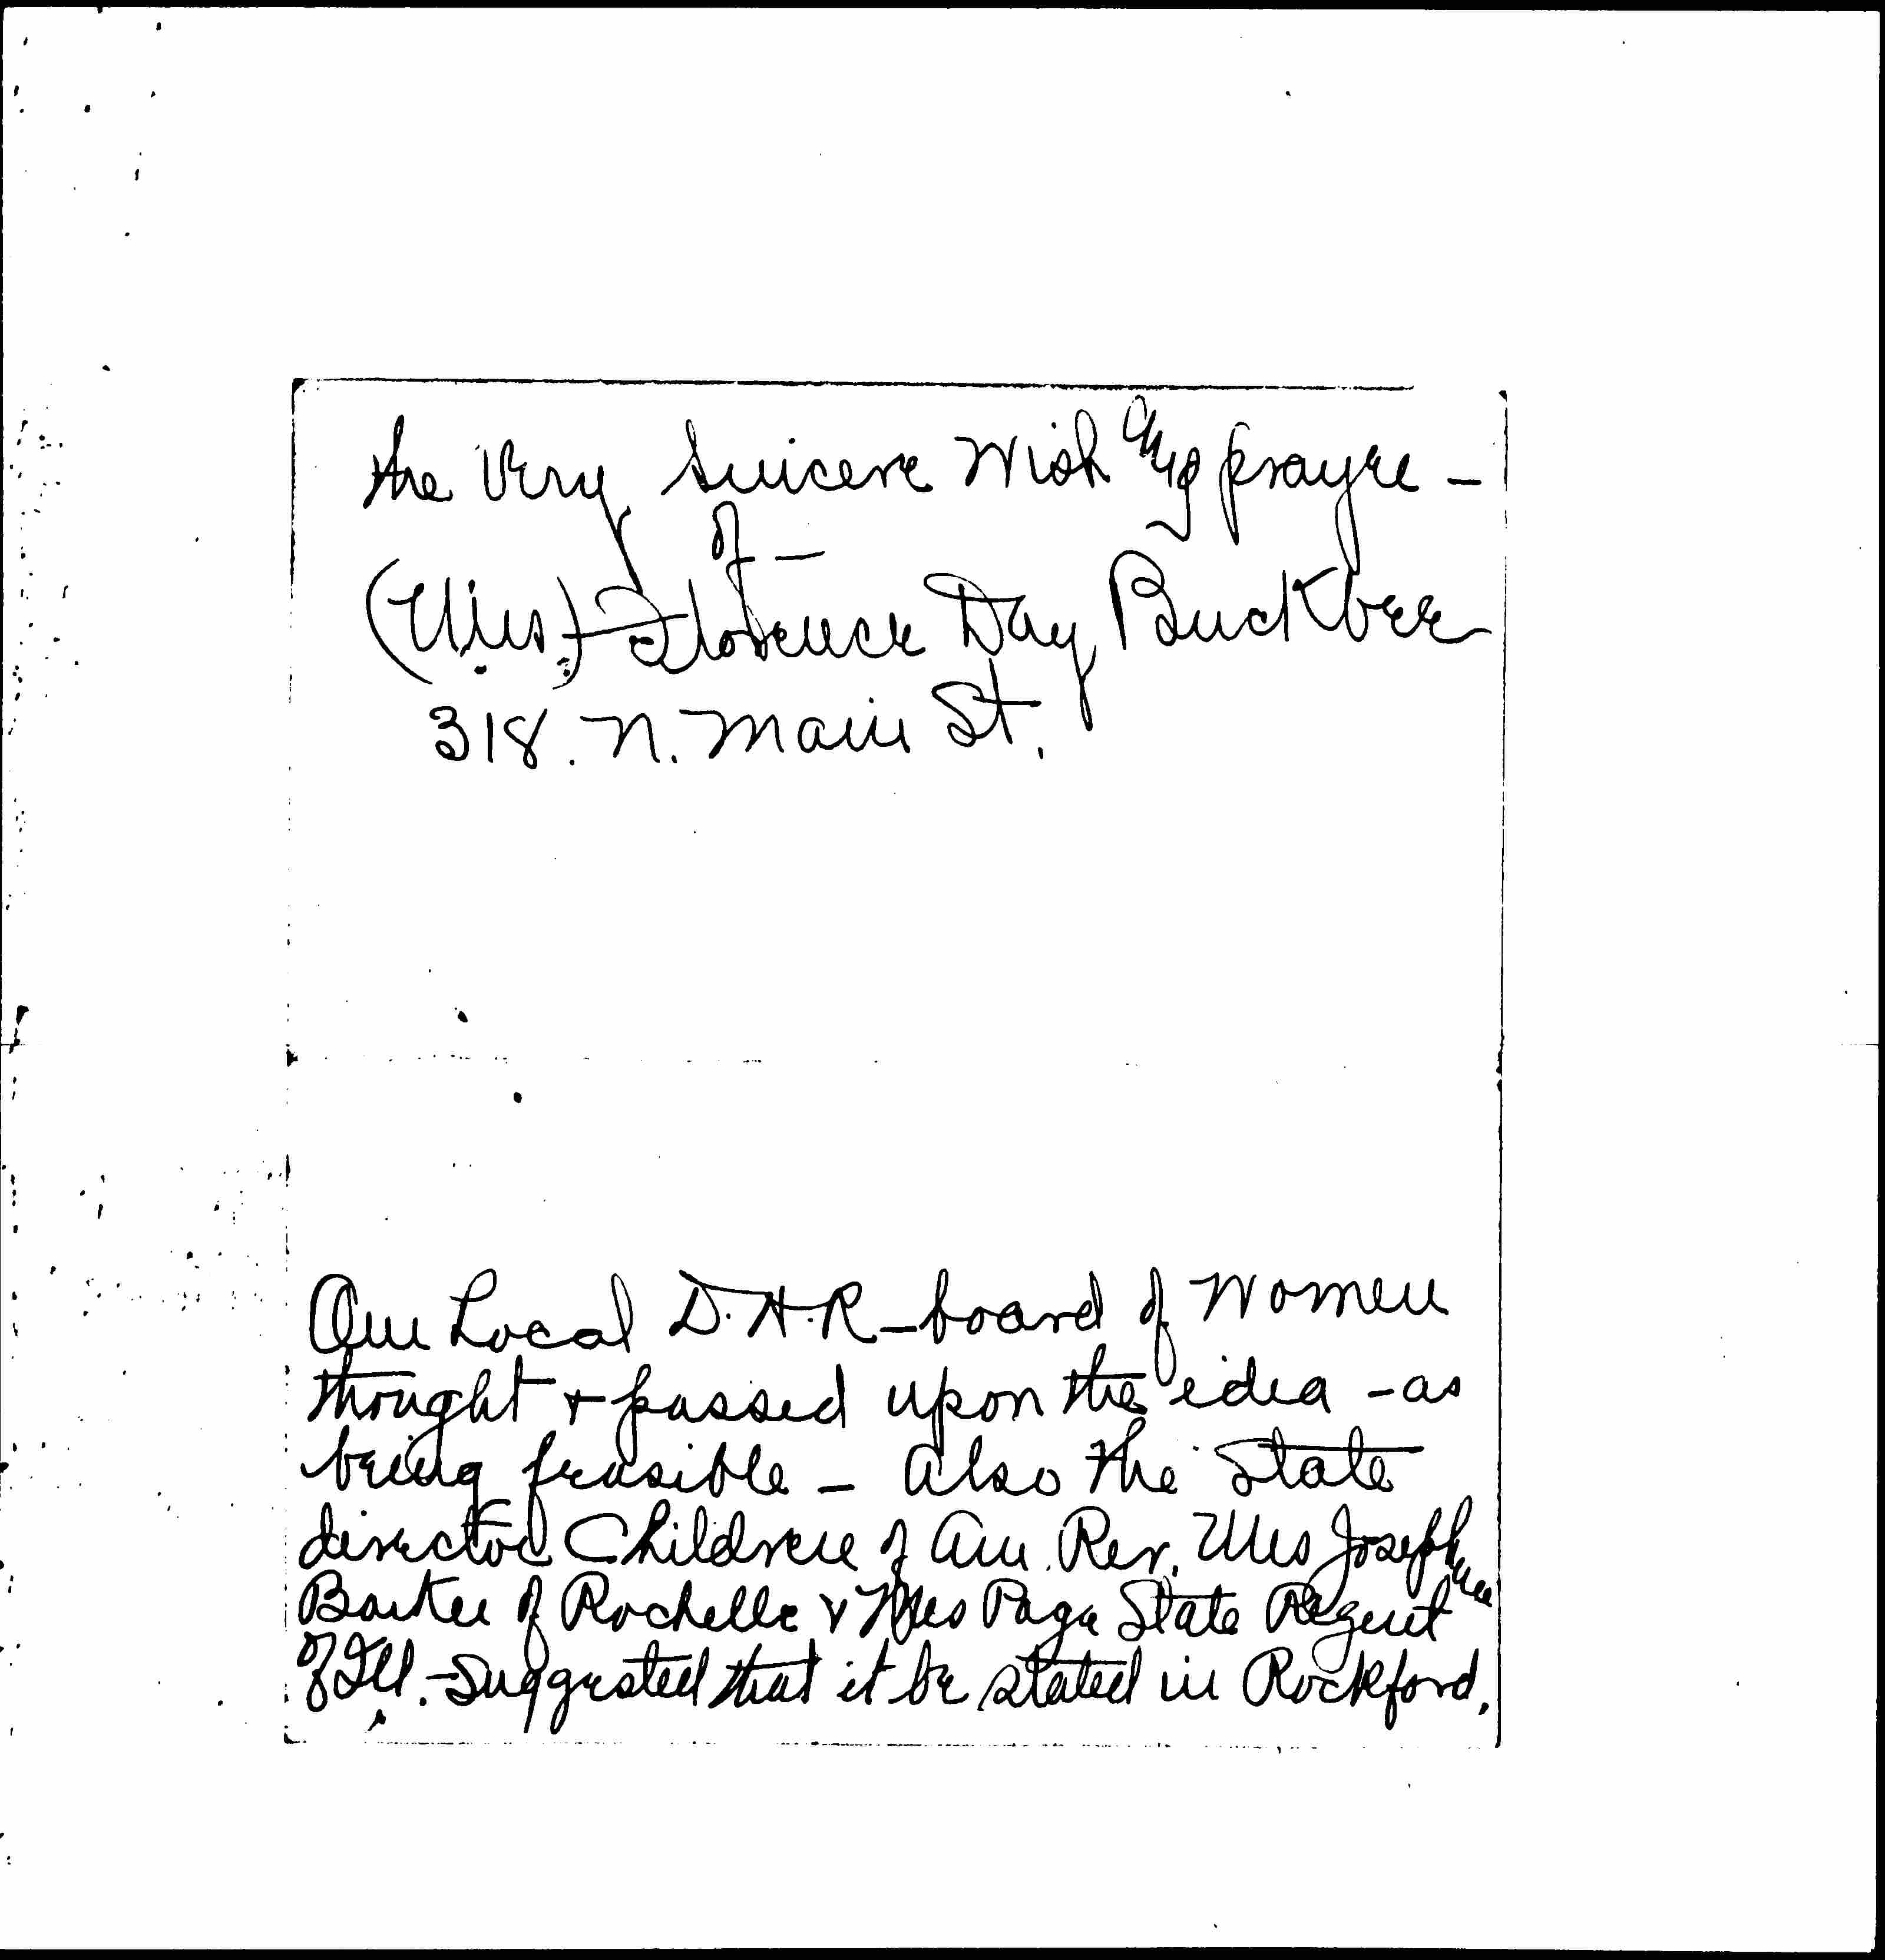 the Very Sincere Wish and prayer -
of -
(Mrs.) Florence Day Buckbee
318. N. Main St.
Our Local D.A.R - board of Women
thought + passed upon the idea - as
being feasible - Also the State
director Children of Am. Rev. Mrs Josephine
Barker of Rochelle & Mrs Page State Regent
of Ill. - Suggested that it be stated in Rockford.